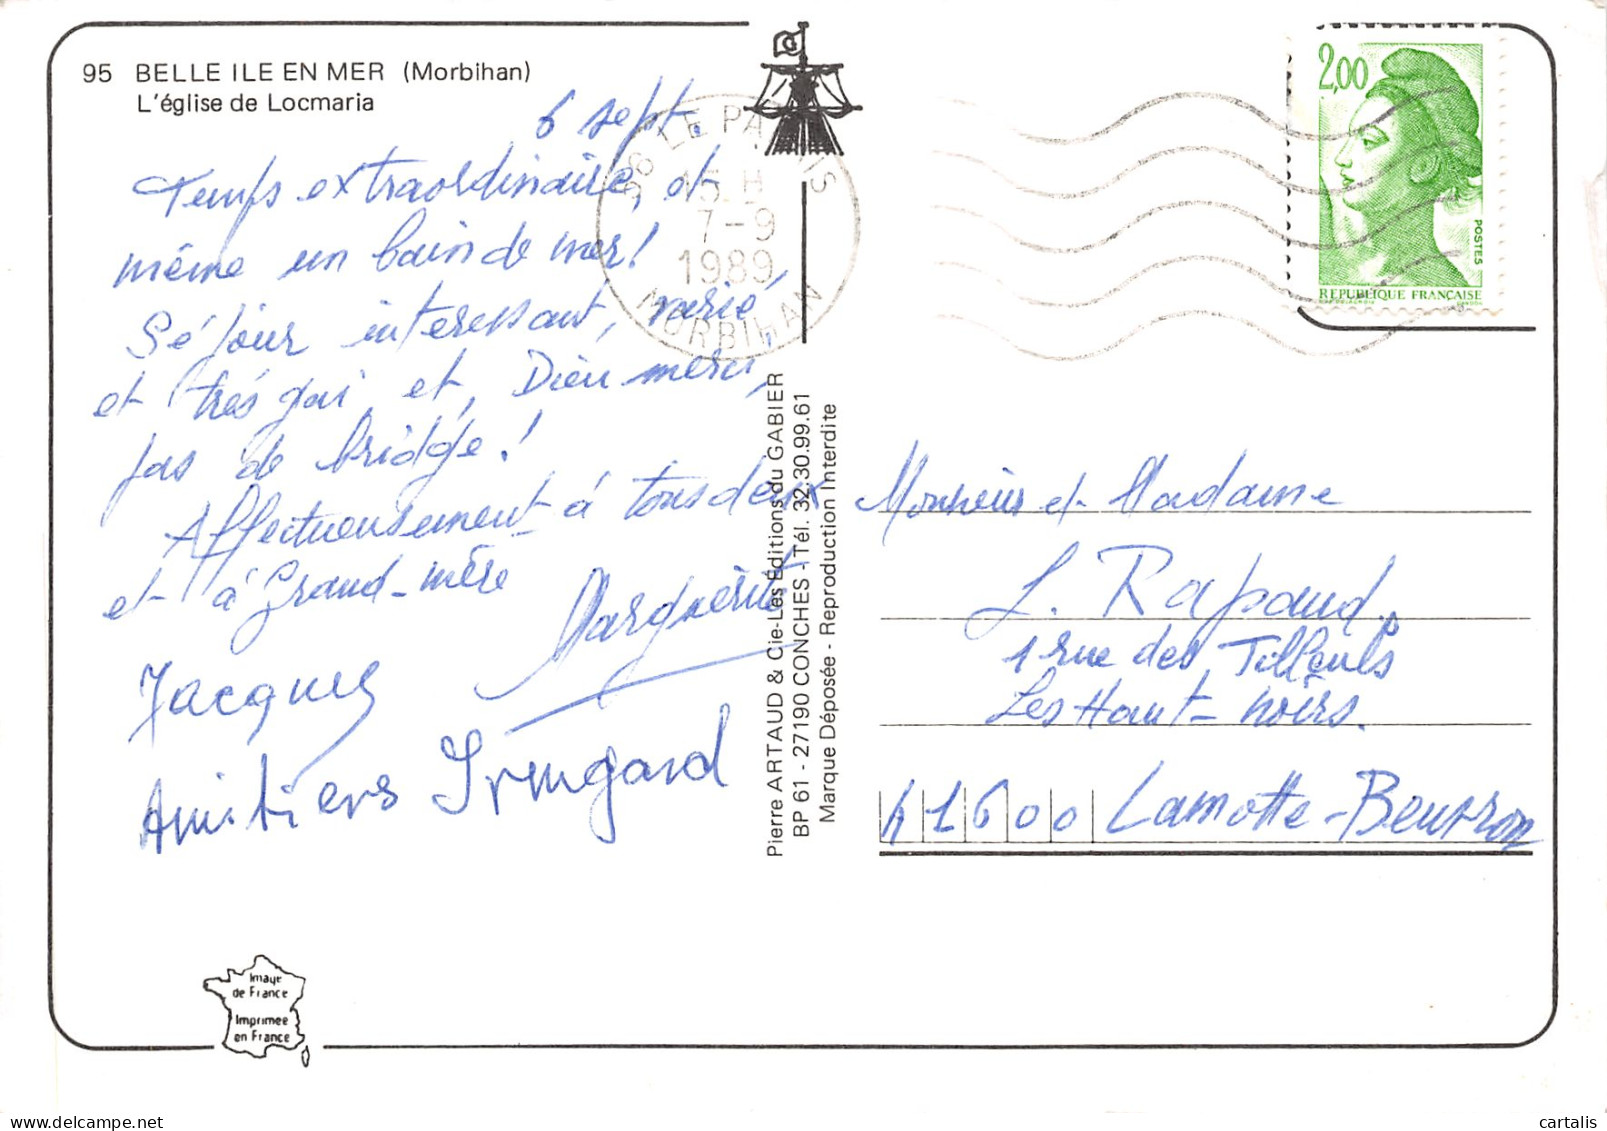 95 BELLE ILE EN MER (Morbihan)
L'église de Locmaria
6 sept.
Temps extraordinaire, et
même un bain de mer!
Séjour interessant, varié,
et très gai et, Dieu merci,
pas de bridge!
Affectueusement à tous deux
et à Grand-mère
Marguerite
Jacques
Amitiers Irmgard
56 LE PALAIS
15 H
7-9
1989
MORBIHAN
Pierre ARTAUD & Cie-Les Editions du GABIER
BP 61 - 27190 CONCHES - Tél. 32.30.99.61
Marque Déposée - Reproduction Interdite
2,00
POSTES
REPUBLIQUE FRANÇAISE
Monsieur et Madame
J. Rapaud
1 rue des Tilleuls
Les Haut-noirs.
41600 Lamotte-Beuvron
Image
de France
Imprimee
en France
cartalis